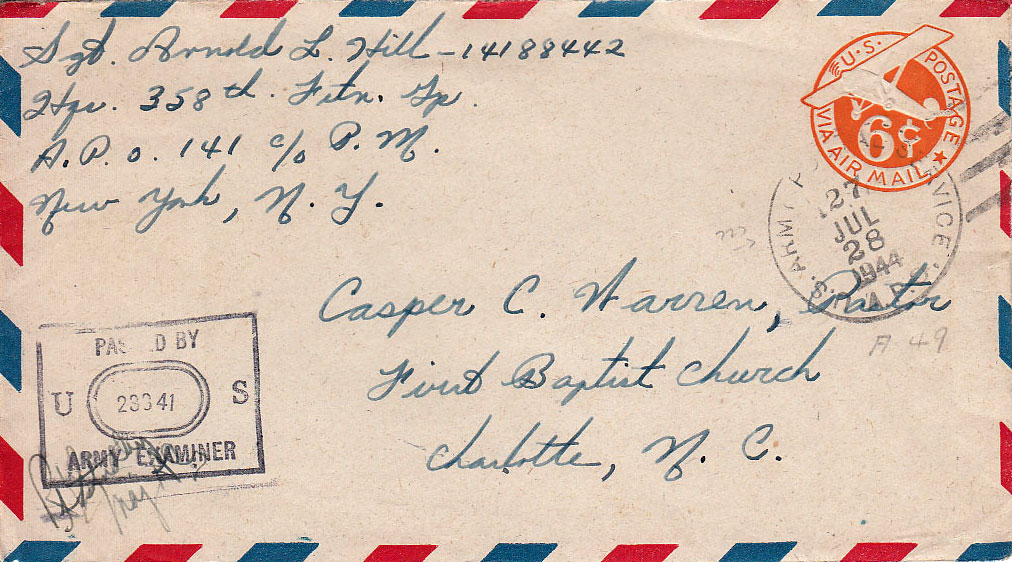 Sgt. Arnold L. Hill - 14188442
Hqs. 358th. Ftr. Gp.
A.P.O. 141 c/o P.M.
New York, N.Y.
U.S. POSTAGE
VIA AIR MAIL
6¢
27
JUL
28
1944
Casper C. Warren, Pastor
First Baptist Church
Charlotte, N.C.
A 49
PASSED BY
U S
23341
ARMY EXAMINER